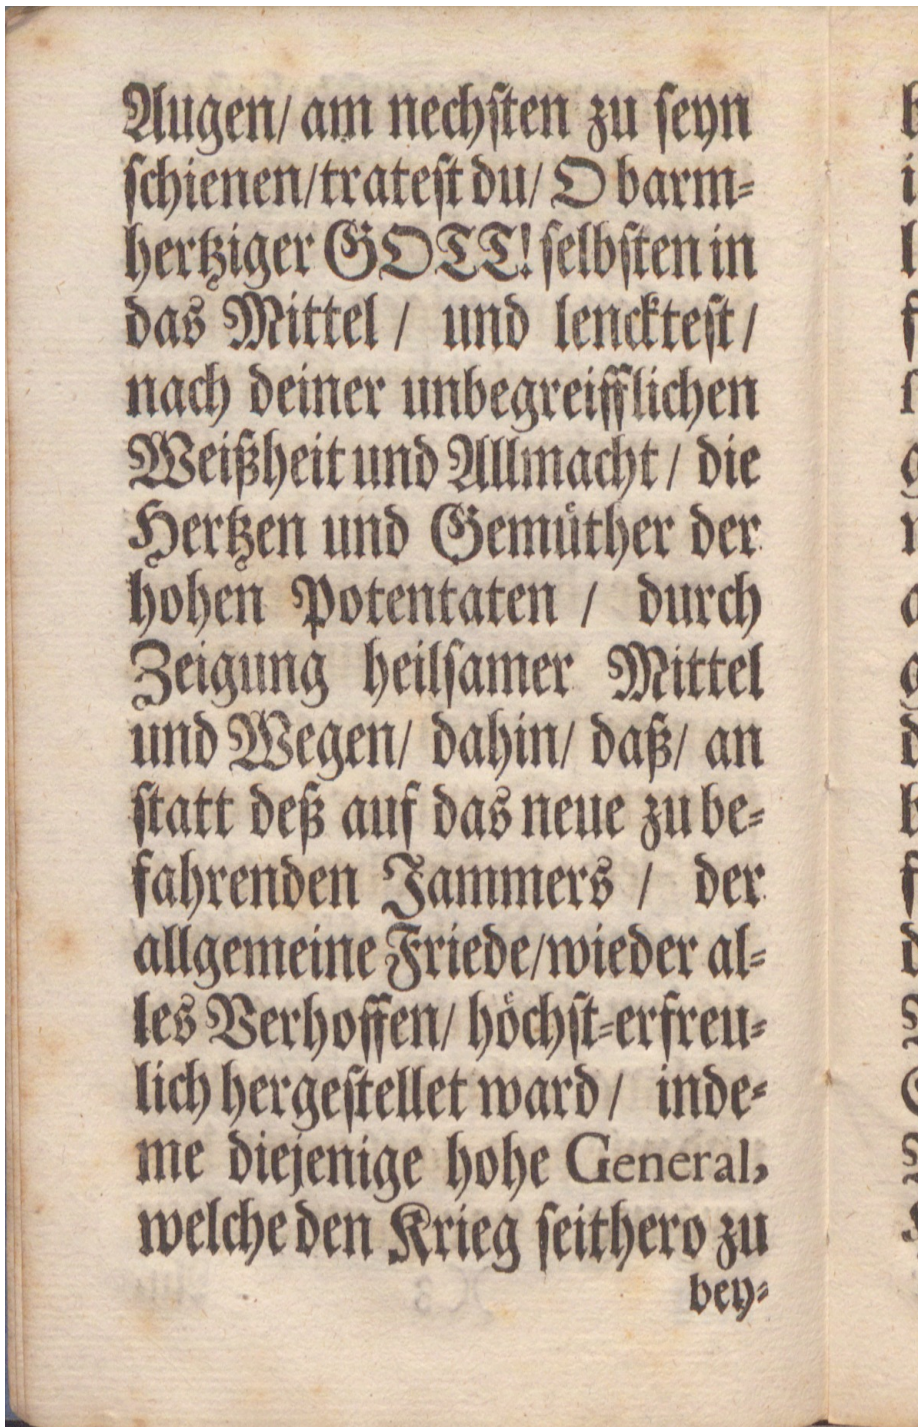 Augen/ am nechsten zu seyn
schienen/tratest du/ O barm-
hertziger GOTT! selbsten in
das Mittel / und lencktest /
nach deiner unbegreifflichen
Weißheit und Allmacht / die
Hertzen und Gemüther der
hohen Potentaten / durch
Zeigung heilsamer Mittel
und Wegen/ dahin/ daß/ an
statt deß auf das neue zu be-
fahrenden Jammers / der
allgemeine Friede/wieder al-
les Verhoffen/ höchst-erfreu-
lich hergestellet ward / inde-
me diejenige hohe General,
welche den Krieg seithero zu
bey-